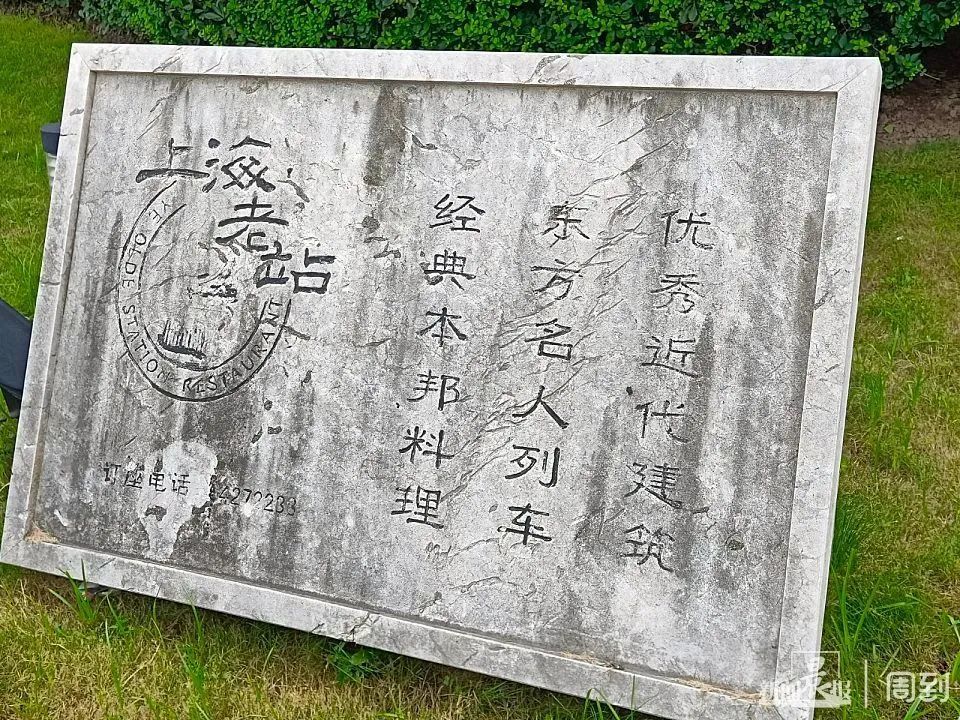 优秀近代建筑
东方名人列车
经典本邦料理
上海
老
站
YE OLDE STATION RESTAURANT
订座电话 64272233
周到